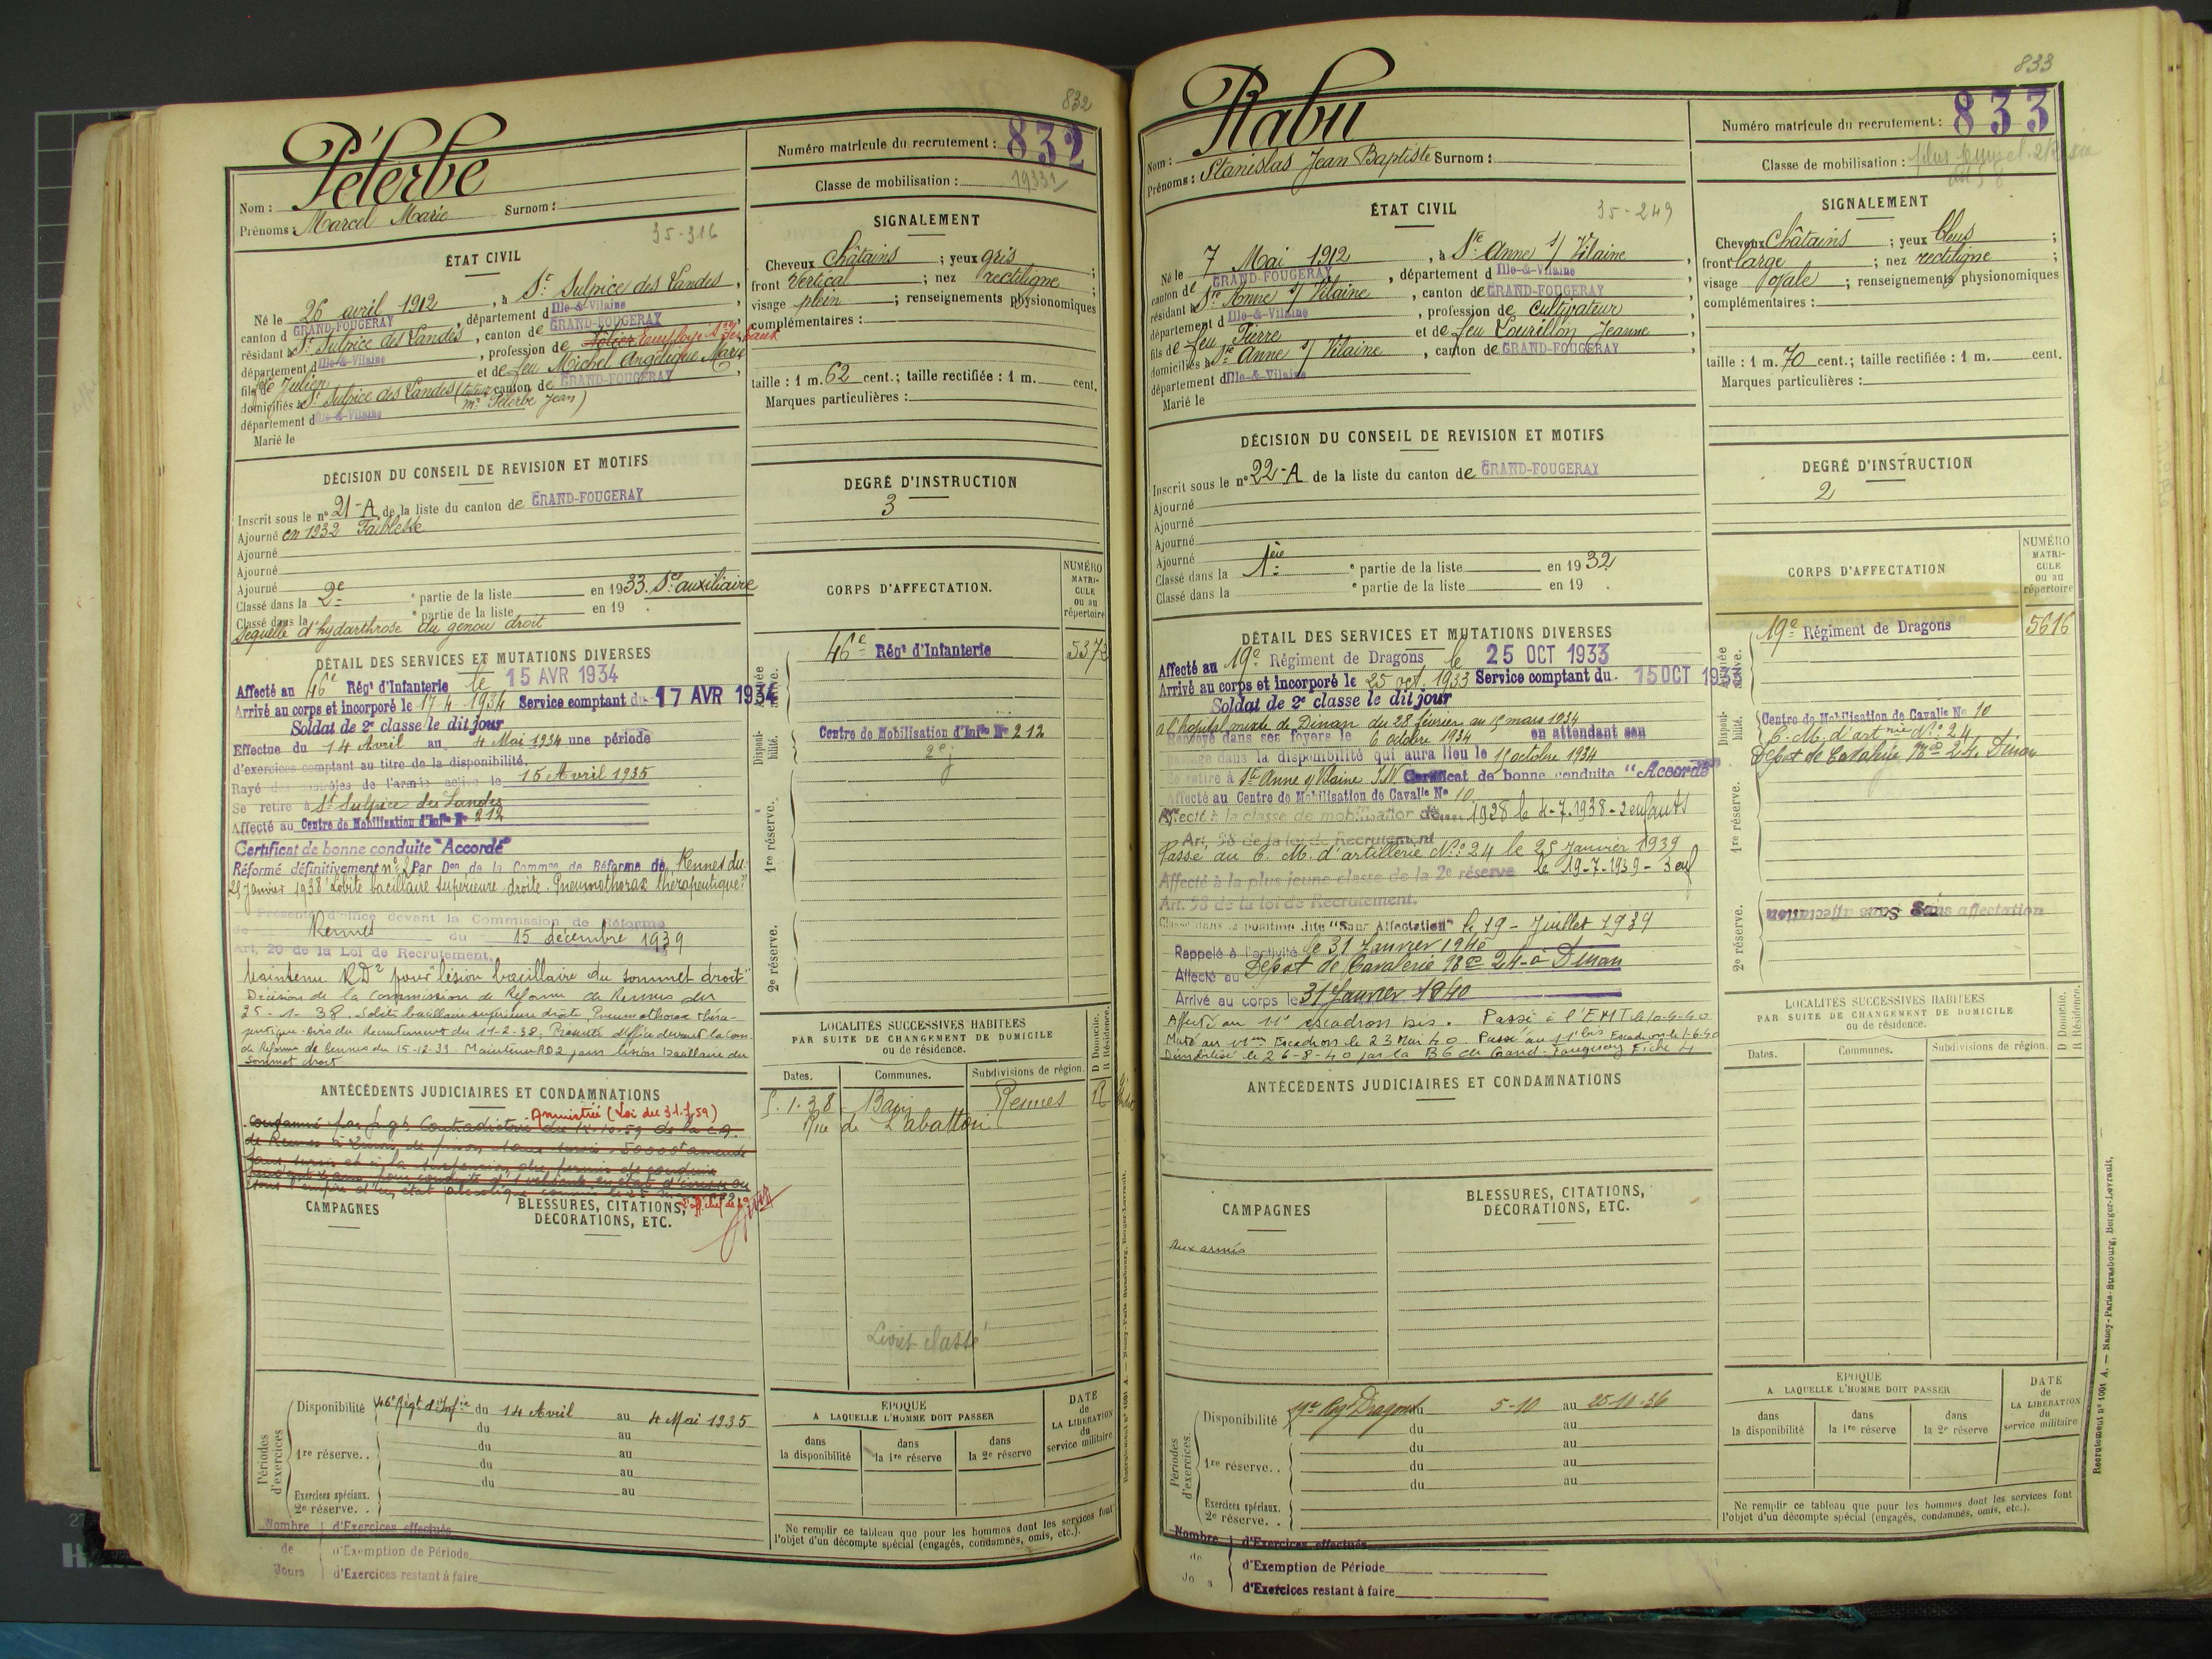 832
Péterbe
Nom :
Prénoms : Marcel Marie Surnom :
35-316
ÉTAT CIVIL
Né le 26 avril 1912, à St Sulpice des Landes,
canton d GRAND-FOUGERAY, département d Ille-&-Vilaine
résidant à St Sulpice des Landes, canton de GRAND-FOUGERAY
département d Ille-&-Vilaine, profession de
fils de Julien et de feu Michel Angélique Marie
domiciliés à St Sulpice des Landes ( canton de GRAND-FOUGERAY
département d Ille-&-Vilaine Péterbe Jean)
Marié le
DÉCISION DU CONSEIL DE REVISION ET MOTIFS
Inscrit sous le n° 21-A de la liste du canton de GRAND-FOUGERAY
Ajourné en 1932 Faiblesse
Ajourné
Ajourné
Ajourné
Classé dans la 2e e partie de la liste en 1933. Sce auxiliaire
Classé dans la e partie de la liste en 19 .
Sequelle d'hydarthrose du genou droit
DÉTAIL DES SERVICES ET MUTATIONS DIVERSES
Affecté au 46e Régt d'Infanterie le 15 AVR 1934
Arrivé au corps et incorporé le 17-4-1934 Service comptant du 17 AVR 1934
Soldat de 2e classe le dit jour
Effectue du 14 Avril au 4 Mai 1934 une période
d'exercices comptant au titre de la disponibilité.
Rayé des contrôles de l'armée active le 15 Avril 1935
Se retire à St Sulpice des Landes
Affecté au Centre de Mobilisation d'Infie No 212
Certificat de bonne conduite "Accordé"
Réformé définitivement n° 2 Par Don de la Common de Réforme de Rennes du
25 Janvier 1938 "Lobite bacillaire supérieure droite. Pneumothorax thérapeutique."
Présenté d'office devant la Commission de Réforme
de Rennes du 15 décembre 1939
Art. 20 de la Loi de Recrutement.
Maintenu RD2 pour "lésion bacillaire du sommet droit"
Décision de la Commission de Réforme de Rennes du
25-1-38. Lobite bacillaire supérieure droite. Pneumothorax théra-
peutique. Avis du Recrutement du 11-2-38. Présenté d'office devant la Com
de Réforme de Rennes du 15-12-39 Maintenu RD2 pour lésion bacillaire du
sommet droit
ANTÉCÉDENTS JUDICIAIRES ET CONDAMNATIONS
Amnistié (Loi du 31.7.59)
CAMPAGNES
BLESSURES, CITATIONS,
DÉCORATIONS, ETC.
Périodes d'exercices
Disponibilité 46e Régt d'Infie du 14 Avril au 4 Mai 1935
du au
1re réserve.. du au
du au
du au
Exercices spéciaux.
2e réserve. .
Nombre d'Exercices effectués
de d'Exemption de Période
Jours d'Exercices restant à faire
Numéro matricule du recrutement : 832
Classe de mobilisation :
SIGNALEMENT
Cheveux Châtains ; yeux gris ;
front Vertical ; nez rectiligne ;
visage plein ; renseignements physionomiques
complémentaires :
taille : 1 m. 62 cent.; taille rectifiée : 1 m. cent.
Marques particulières :
DEGRÉ D'INSTRUCTION
3
CORPS D'AFFECTATION.
NUMÉRO MATRI-CULE ou au répertoire
46e Régt d'Infanterie
Disponi-bilité.
Centre de Mobilisation d'Infie No 212
1re réserve.
2e réserve.
LOCALITÉS SUCCESSIVES HABITÉES
PAR SUITE DE CHANGEMENT DE DOMICILE
ou de résidence.
D Domicile.
R Résidence.
Dates. Communes. Subdivisions de région.
5.1.38 Bain Rennes R
Rue de L'abattoir
Livret classé
ÉPOQUE
A LAQUELLE L'HOMME DOIT PASSER
DATE de LA LIBÉRATION du service militaire
dans la disponibilité
dans la 1re réserve
dans la 2e réserve
Ne remplir ce tableau que pour les hommes dont les services font
l'objet d'un décompte spécial (engagés, condamnés, omis, etc.).
833
Rabu
Nom :
Prénoms : Stanislas Jean Baptiste Surnom :
35-249
ÉTAT CIVIL
Né le 7 Mai 1912, à Ste Anne s/ Vilaine,
canton de GRAND-FOUGERAY, département d Ille-&-Vilaine
résidant à Ste Anne s/ Vilaine, canton de GRAND-FOUGERAY
département d Ille-&-Vilaine, profession de Cultivateur
fils de feu Pierre et de feu Jeanne
domiciliés à Ste Anne s/ Vilaine, canton de GRAND-FOUGERAY
département d Ille-&-Vilaine
Marié le
DÉCISION DU CONSEIL DE REVISION ET MOTIFS
Inscrit sous le n° 22-A de la liste du canton de GRAND-FOUGERAY
Ajourné
Ajourné
Ajourné
Ajourné
Classé dans la 1ère e partie de la liste en 1932
Classé dans la e partie de la liste en 19 .
DÉTAIL DES SERVICES ET MUTATIONS DIVERSES
Affecté au 19e Régiment de Dragons le 25 OCT 1933
Arrivé au corps et incorporé le 25 oct. 1933 Service comptant du 15 OCT 1933
Soldat de 2e classe le dit jour
a l'hopital mixte de Dinan du 28 février au 15 mars 1934
Renvoyé dans ses foyers le 6 octobre 1934 en attendant son
passage dans la disponibilité qui aura lieu le 15 octobre 1934
Se retire à Ste Anne s/ Vilaine I&V Certificat de bonne conduite "Accordé"
Affecté au Centre de Mobilisation de Cavalie No 10
Affecté à la classe de mobilisation de 1928 le 4-7-1938 - 2 enfants
Art. 58 de la loi de Recrutement
Passé au C. M. d'artillerie No 24 le 25 Janvier 1939
Affecté à la plus jeune classe de la 2e réserve le 19-7-1939 - 3 enf
Art. 58 de la loi de Recrutement.
Classé dans la position dite "Sans Affectation" le 19 - Juillet 1939
Rappelé à l'activité le 31 Janvier 1940
Affecté au Dépot de Cavalerie No 24 à Dinan
Arrivé au corps le 31 Janvier 1940
Affecté au 11e escadron bis. Passé à l'EMT le 10-4-40
Muté au 11me Escadron le 23 Mai 40. Passé au 11e bis Escadron le 1-6-40
Démobilisé le 26-8-40 par la BG de Grand-Fougeray Fiche 4
ANTÉCÉDENTS JUDICIAIRES ET CONDAMNATIONS
CAMPAGNES
BLESSURES, CITATIONS,
DÉCORATIONS, ETC.
Aux armées
Périodes d'exercices.
Disponibilité 19e Rgt Dragons du 5-10 au 25-10-36
du au
1re réserve. . du au
du au
du au
Exercices spéciaux.
2e réserve. .
Nombre d'Exercices effectués
de d'Exemption de Période
d'Exercices restant à faire
Numéro matricule du recrutement : 833
Classe de mobilisation :
SIGNALEMENT
Cheveux Châtains ; yeux bleus ;
front large ; nez rectiligne ;
visage ovale ; renseignements physionomiques
complémentaires :
taille : 1 m. 70 cent.; taille rectifiée : 1 m. cent.
Marques particulières :
DEGRÉ D'INSTRUCTION
2
CORPS D'AFFECTATION
NUMÉRO MATRI-CULE ou au répertoire
19e Régiment de Dragons 5616
Disponi-bilité.
Centre de Mobilisation de Cavalie No 10
C. M. d'artrie No 24
Dépot de Cavalerie No 24 Dinan
1re réserve.
2e réserve.
Sans affectation
LOCALITÉS SUCCESSIVES HABITÉES
PAR SUITE DE CHANGEMENT DE DOMICILE
ou de résidence.
D Domicile.
R Résidence.
Dates. Communes. Subdivisions de région.
ÉPOQUE
A LAQUELLE L'HOMME DOIT PASSER
DATE de LA LIBÉRATION du service militaire
dans la disponibilité
dans la 1re réserve
dans la 2e réserve
Ne remplir ce tableau que pour les hommes dont les services font
l'objet d'un décompte spécial (engagés, condamnés, omis, etc.).
Recrutement n° 1001 A. — Nancy-Paris-Strasbourg, Berger-Levrault.